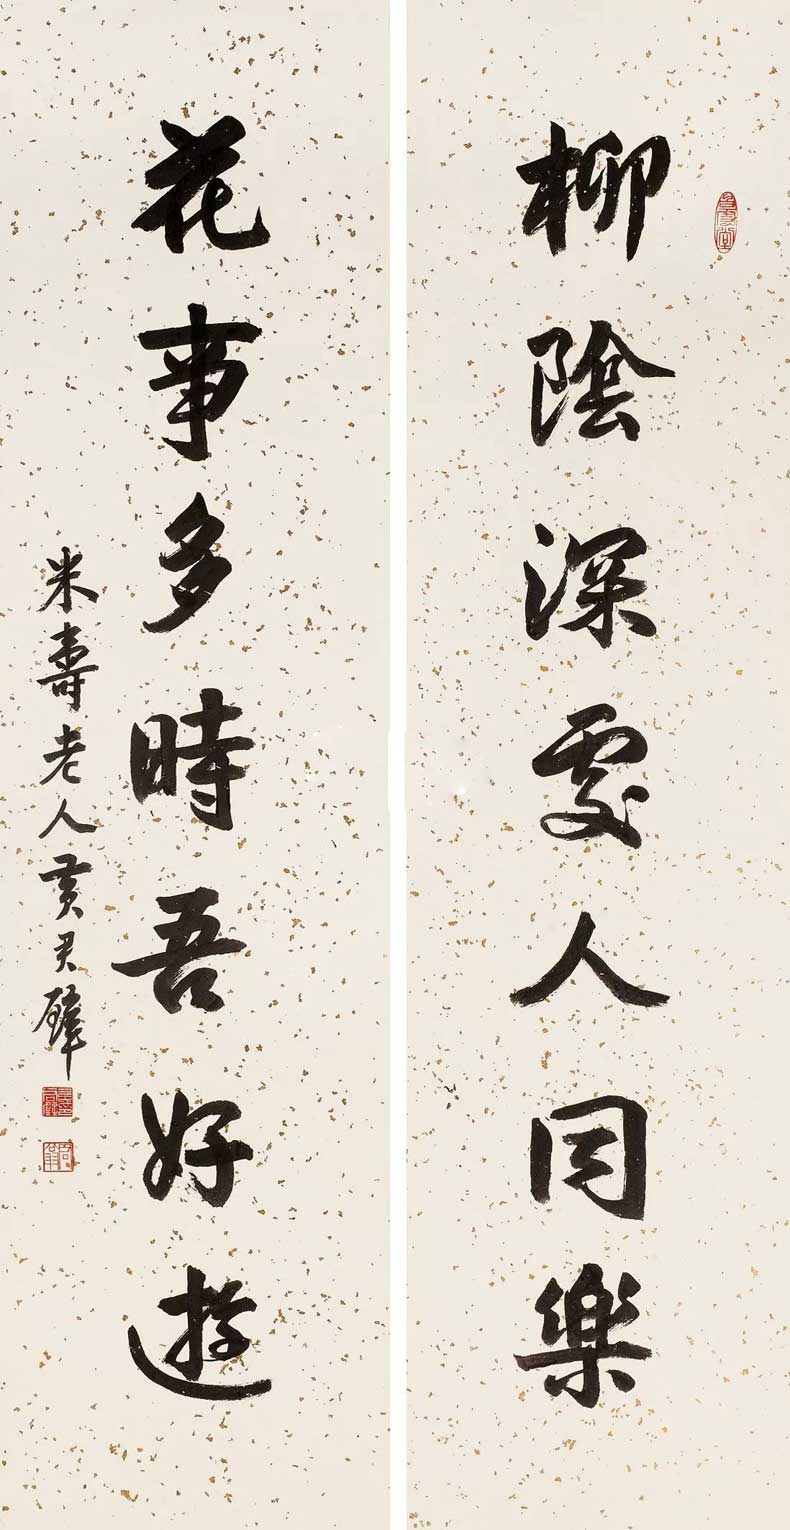 柳陰深處人同樂
花事多時吾好遊
米壽老人黃君璧